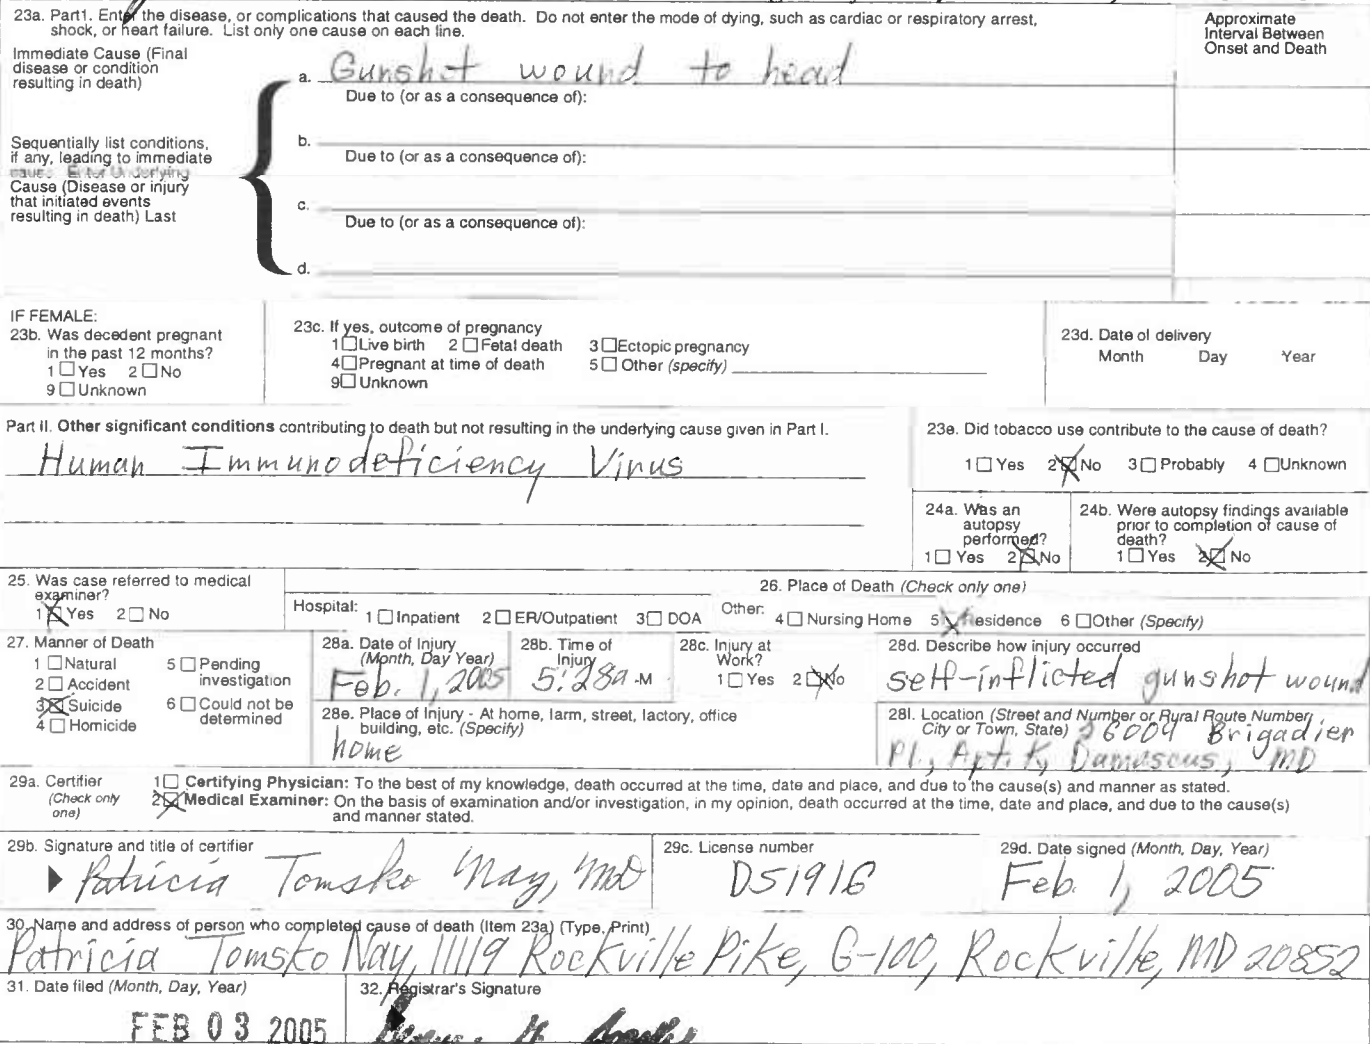 23a. Part1. Enter the disease, or complications that caused the death. Do not enter the mode of dying, such as cardiac or respiratory arrest,
shock, or heart failure. List only one cause on each line.
Approximate
Interval Between
Onset and Death
Immediate Cause (Final
disease or condition
resulting in death)
a. Gunshot wound to head
Due to (or as a consequence of):
Sequentially list conditions,
if any, leading to immediate
cause. Enter Underlying
Cause (Disease or injury
that initiated events
resulting in death) Last
b.
Due to (or as a consequence of):
c.
Due to (or as a consequence of):
d.
IF FEMALE:
23b. Was decedent pregnant
in the past 12 months?
1 ☐ Yes 2 ☐ No
9 ☐ Unknown
23c. If yes, outcome of pregnancy
1 ☐ Live birth 2 ☐ Fetal death 3 ☐ Ectopic pregnancy
4 ☐ Pregnant at time of death 5 ☐ Other (specify)
9 ☐ Unknown
23d. Date of delivery
Month Day Year
Part II. Other significant conditions contributing to death but not resulting in the underlying cause given in Part I.
Human Immunodeficiency Virus
23e. Did tobacco use contribute to the cause of death?
1 ☐ Yes 2 ☒ No 3 ☐ Probably 4 ☐ Unknown
24a. Was an
autopsy
performed?
1 ☐ Yes 2 ☒ No
24b. Were autopsy findings available
prior to completion of cause of
death?
1 ☐ Yes 2 ☒ No
25. Was case referred to medical
examiner?
1 ☒ Yes 2 ☐ No
26. Place of Death (Check only one)
Hospital: 1 ☐ Inpatient 2 ☐ ER/Outpatient 3 ☐ DOA Other: 4 ☐ Nursing Home 5 ☒ Residence 6 ☐ Other (Specify)
27. Manner of Death
1 ☐ Natural 5 ☐ Pending
investigation
2 ☐ Accident
3 ☒ Suicide 6 ☐ Could not be
determined
4 ☐ Homicide
28a. Date of Injury
(Month, Day Year)
Feb. 1, 2005
28b. Time of
Injury
5:28a -M
28c. Injury at
Work?
1 ☐ Yes 2 ☒ No
28d. Describe how injury occurred
self-inflicted gunshot wound
28e. Place of Injury - At home, farm, street, factory, office
building, etc. (Specify)
home
28f. Location (Street and Number or Rural Route Number,
City or Town, State) 26004 Brigadier
Pl., Apt. K, Damascus, MD
29a. Certifier
(Check only
one)
1 ☐ Certifying Physician: To the best of my knowledge, death occurred at the time, date and place, and due to the cause(s) and manner as stated.
2 ☒ Medical Examiner: On the basis of examination and/or investigation, in my opinion, death occurred at the time, date and place, and due to the cause(s)
and manner stated.
29b. Signature and title of certifier
Patricia Tomsko Nay, MD
29c. License number
D51916
29d. Date signed (Month, Day, Year)
Feb. 1, 2005
30. Name and address of person who completed cause of death (Item 23a) (Type, Print)
Patricia Tomsko Nay, 11119 Rockville Pike, G-100, Rockville, MD 20852
31. Date filed (Month, Day, Year)
FEB 03 2005
32. Registrar's Signature